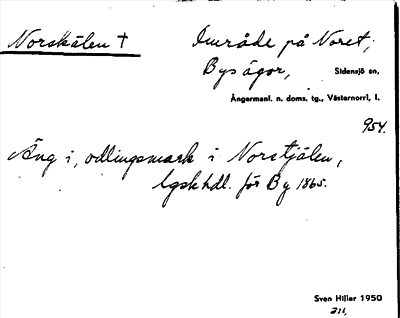 Norskälen †
Område på Noret,
Bys ägor,
Sidensjö sn,
Ångermanl. n. doms. tg., Västernorrl, l.
954.
Äng i, odlingsmark i Norstjälen,
lgskhdl. för By 1865.
Sven Hiller 1950
311.